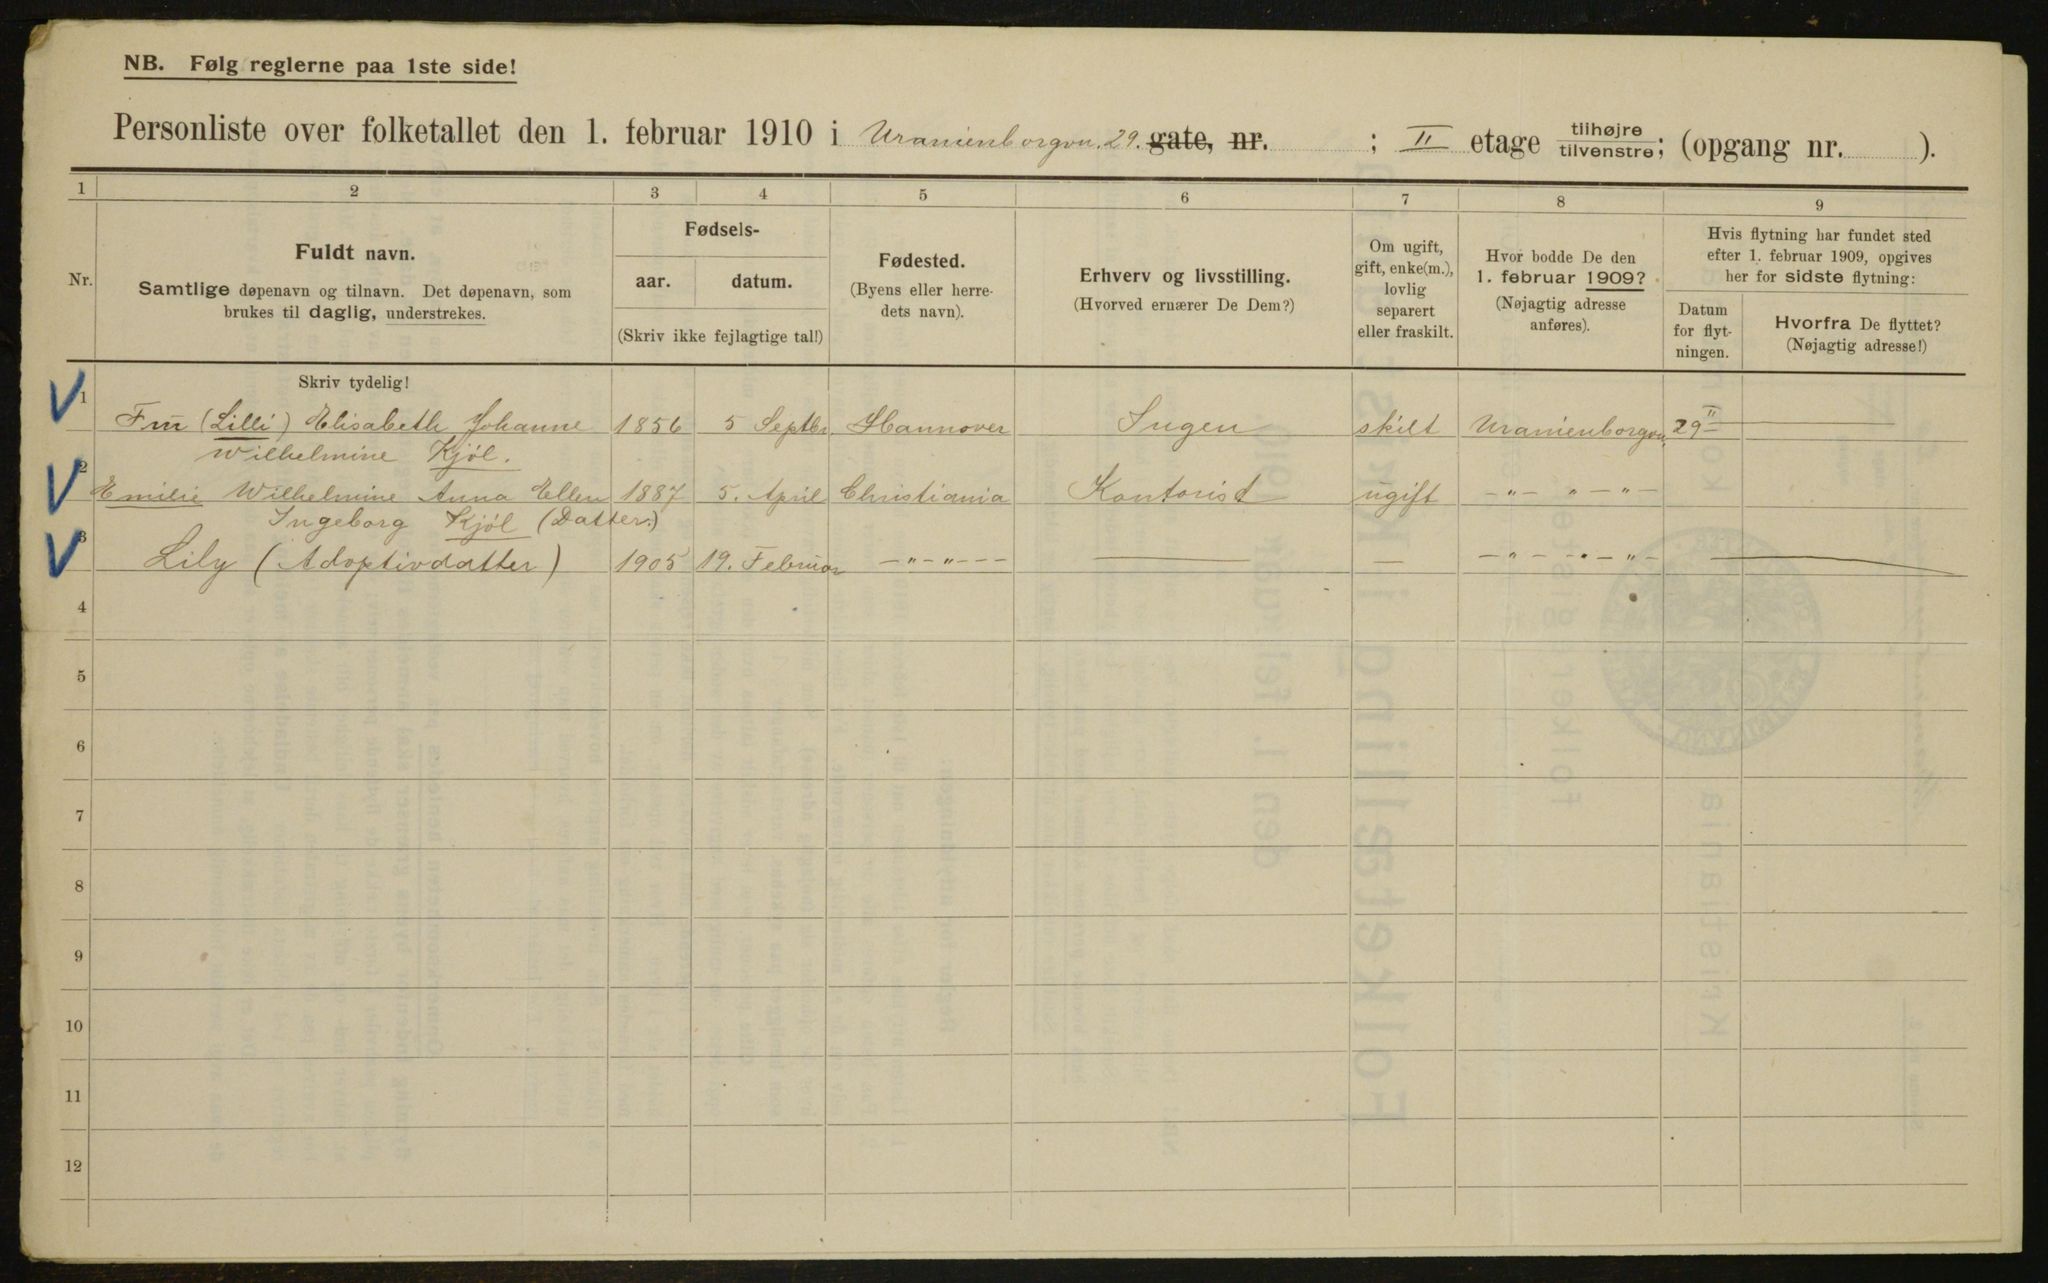 NB. Følg reglerne paa 1ste side!
Personliste over folketallet den 1. februar 1910 i Uranienborgvn. 29. gate, nr. ; II etage tilhøjre tilvenstre; (opgang nr. ).
1 2 3 4 5 6 7 8 9
Nr.
Fuldt navn.
Samtlige døpenavn og tilnavn. Det døpenavn, som
brukes til daglig, understrekes.
Fødsels-
aar. datum.
(Skriv ikke fejlagtige tal!)
Fødested.
(Byens eller herre-
dets navn).
Erhverv og livsstilling.
(Hvorved ernærer De Dem?)
Om ugift,
gift, enke(m.),
lovlig
separert
eller fraskilt.
Hvor bodde De den
1. februar 1909?
(Nøjagtig adresse
anføres).
Hvis flytning har fundet sted
efter 1. februar 1909, opgives
her for sidste flytning:
Datum
for flyt-
ningen.
Hvorfra De flyttet?
(Nøjagtig adresse!)
Skriv tydelig!
1 Frü (Lilli) Elisabeth Johanne 1856 5 Septbr. Hannover Ingen skilt Uranienborgvn. 29 II
Wilhelmine Kjöl.
2 Emilie Wilhelmine Anna Ellen 1887 5. April Christiania Kontorist ugift –"– " –"–
Ingeborg Kjöl (Datter.)
3 Lily (Adoptivdatter) 1905 19. Februar –"–"–– — — –"– "–"– —
4
5
6
7
8
9
10
11
12